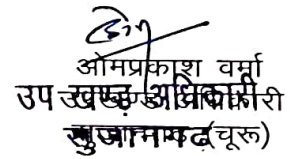 ओमप्रकाश वर्मा
उप खण्ड अधिकारी
सुजानगढ़ (चूरू)